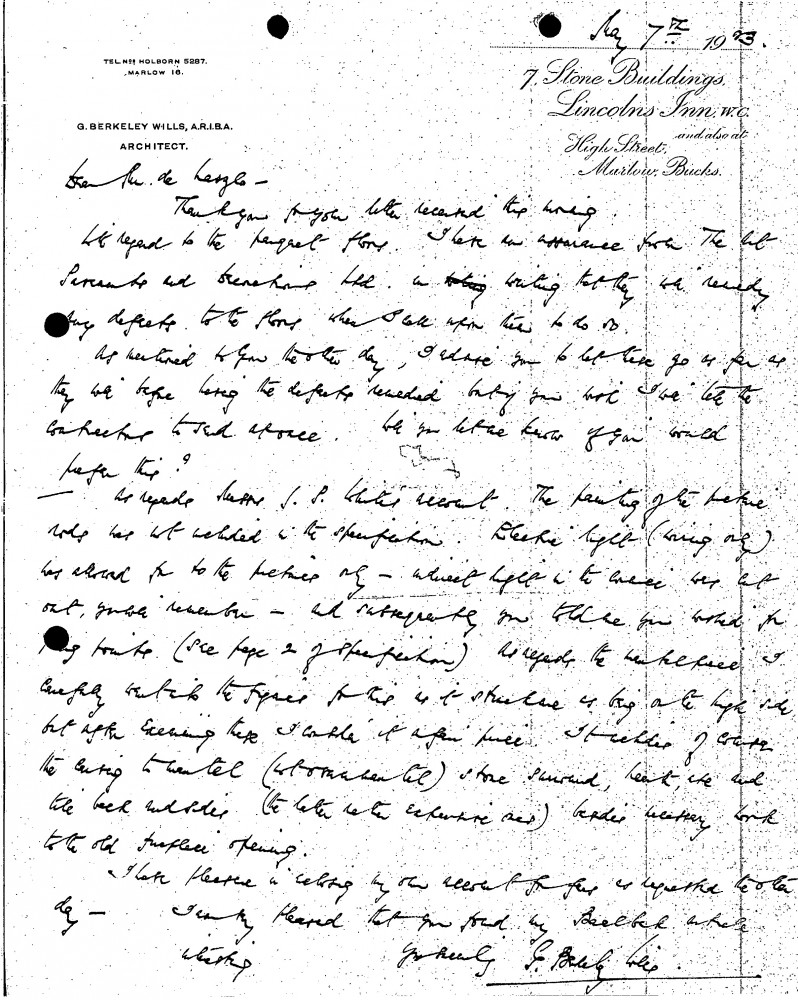 May 7th 1923.
TEL. Nos HOLBORN 5287.
MARLOW 16.
7, Stone Buildings,
Lincolns Inn, W.C.
and also at
High Street,
Marlow, Bucks.
G. BERKELEY WILLS, A.R.I.B.A.
ARCHITECT.
Dear Mr. de Laszlo –
Thank you for your letter received this morning.
With regard to the parquet floors. I have an assurance from The
and Ltd. in writing that they will remedy
any defects to the floors when I call upon them to do so
As mentioned to you the other day, I advise you to let these go as far as
they will before having the defects remedied but if you wish I will tell the
contractors to send at once. Will you let me know if you would
prefer this?
– As regards Messrs account. The painting of the picture
rods was not included in the specification. Electric light (wiring only)
was allowed for to the pictures only – indirect light in the was cut
out, you will remember – and subsequently you told me you wished for
plug points. (see page 2 of specification) As regards the mantelpiece I
carefully went into the figures for this as it struck me as being on the high side
but after examining these I consider it a fair price. It includes of course
the to mantel (not ) stone surround, and
tile back and sides (the latter rather expensive ones) besides necessary work
to the old fireplace opening.
I have pleasure in enclosing my own account for fees as requested the other
day – I am very pleased that you found my article
interesting
Yours sincerely G. Berkeley Wills.